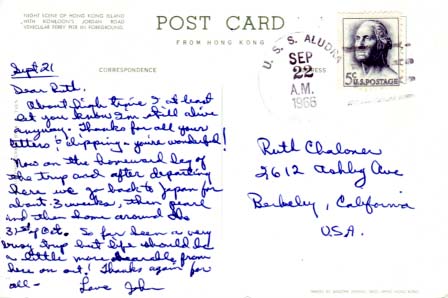 NIGHT SCENE OF HONG KONG ISLAND
WITH KOWLOON'S JORDAN ROAD
VEHICULAR FERRY PIER IN FOREGROUND.
POST CARD
FROM HONG KONG
CORRESPONDENCE
ADDRESS
U.S.S. ALUDRA
SEP
22
A.M.
1966
5¢ U.S. POSTAGE
Sept 21
Dear Ruth.
About high time I at least
let you know I'm still alive
anyway. Thanks for all your
letters & clippings - you're wonderful!
Now on the homeward leg of
the trip and after departing
here we go back to Japan for
about 3 weeks, then pearl
and then home around the
31st of Oct. So far been a very
busy trip but life should be
a little more bearable from
here on out! Thanks again for
all -
Love John
Ruth Chaloner
2612 Ashby Ave
Berkeley, California
U.S.A.